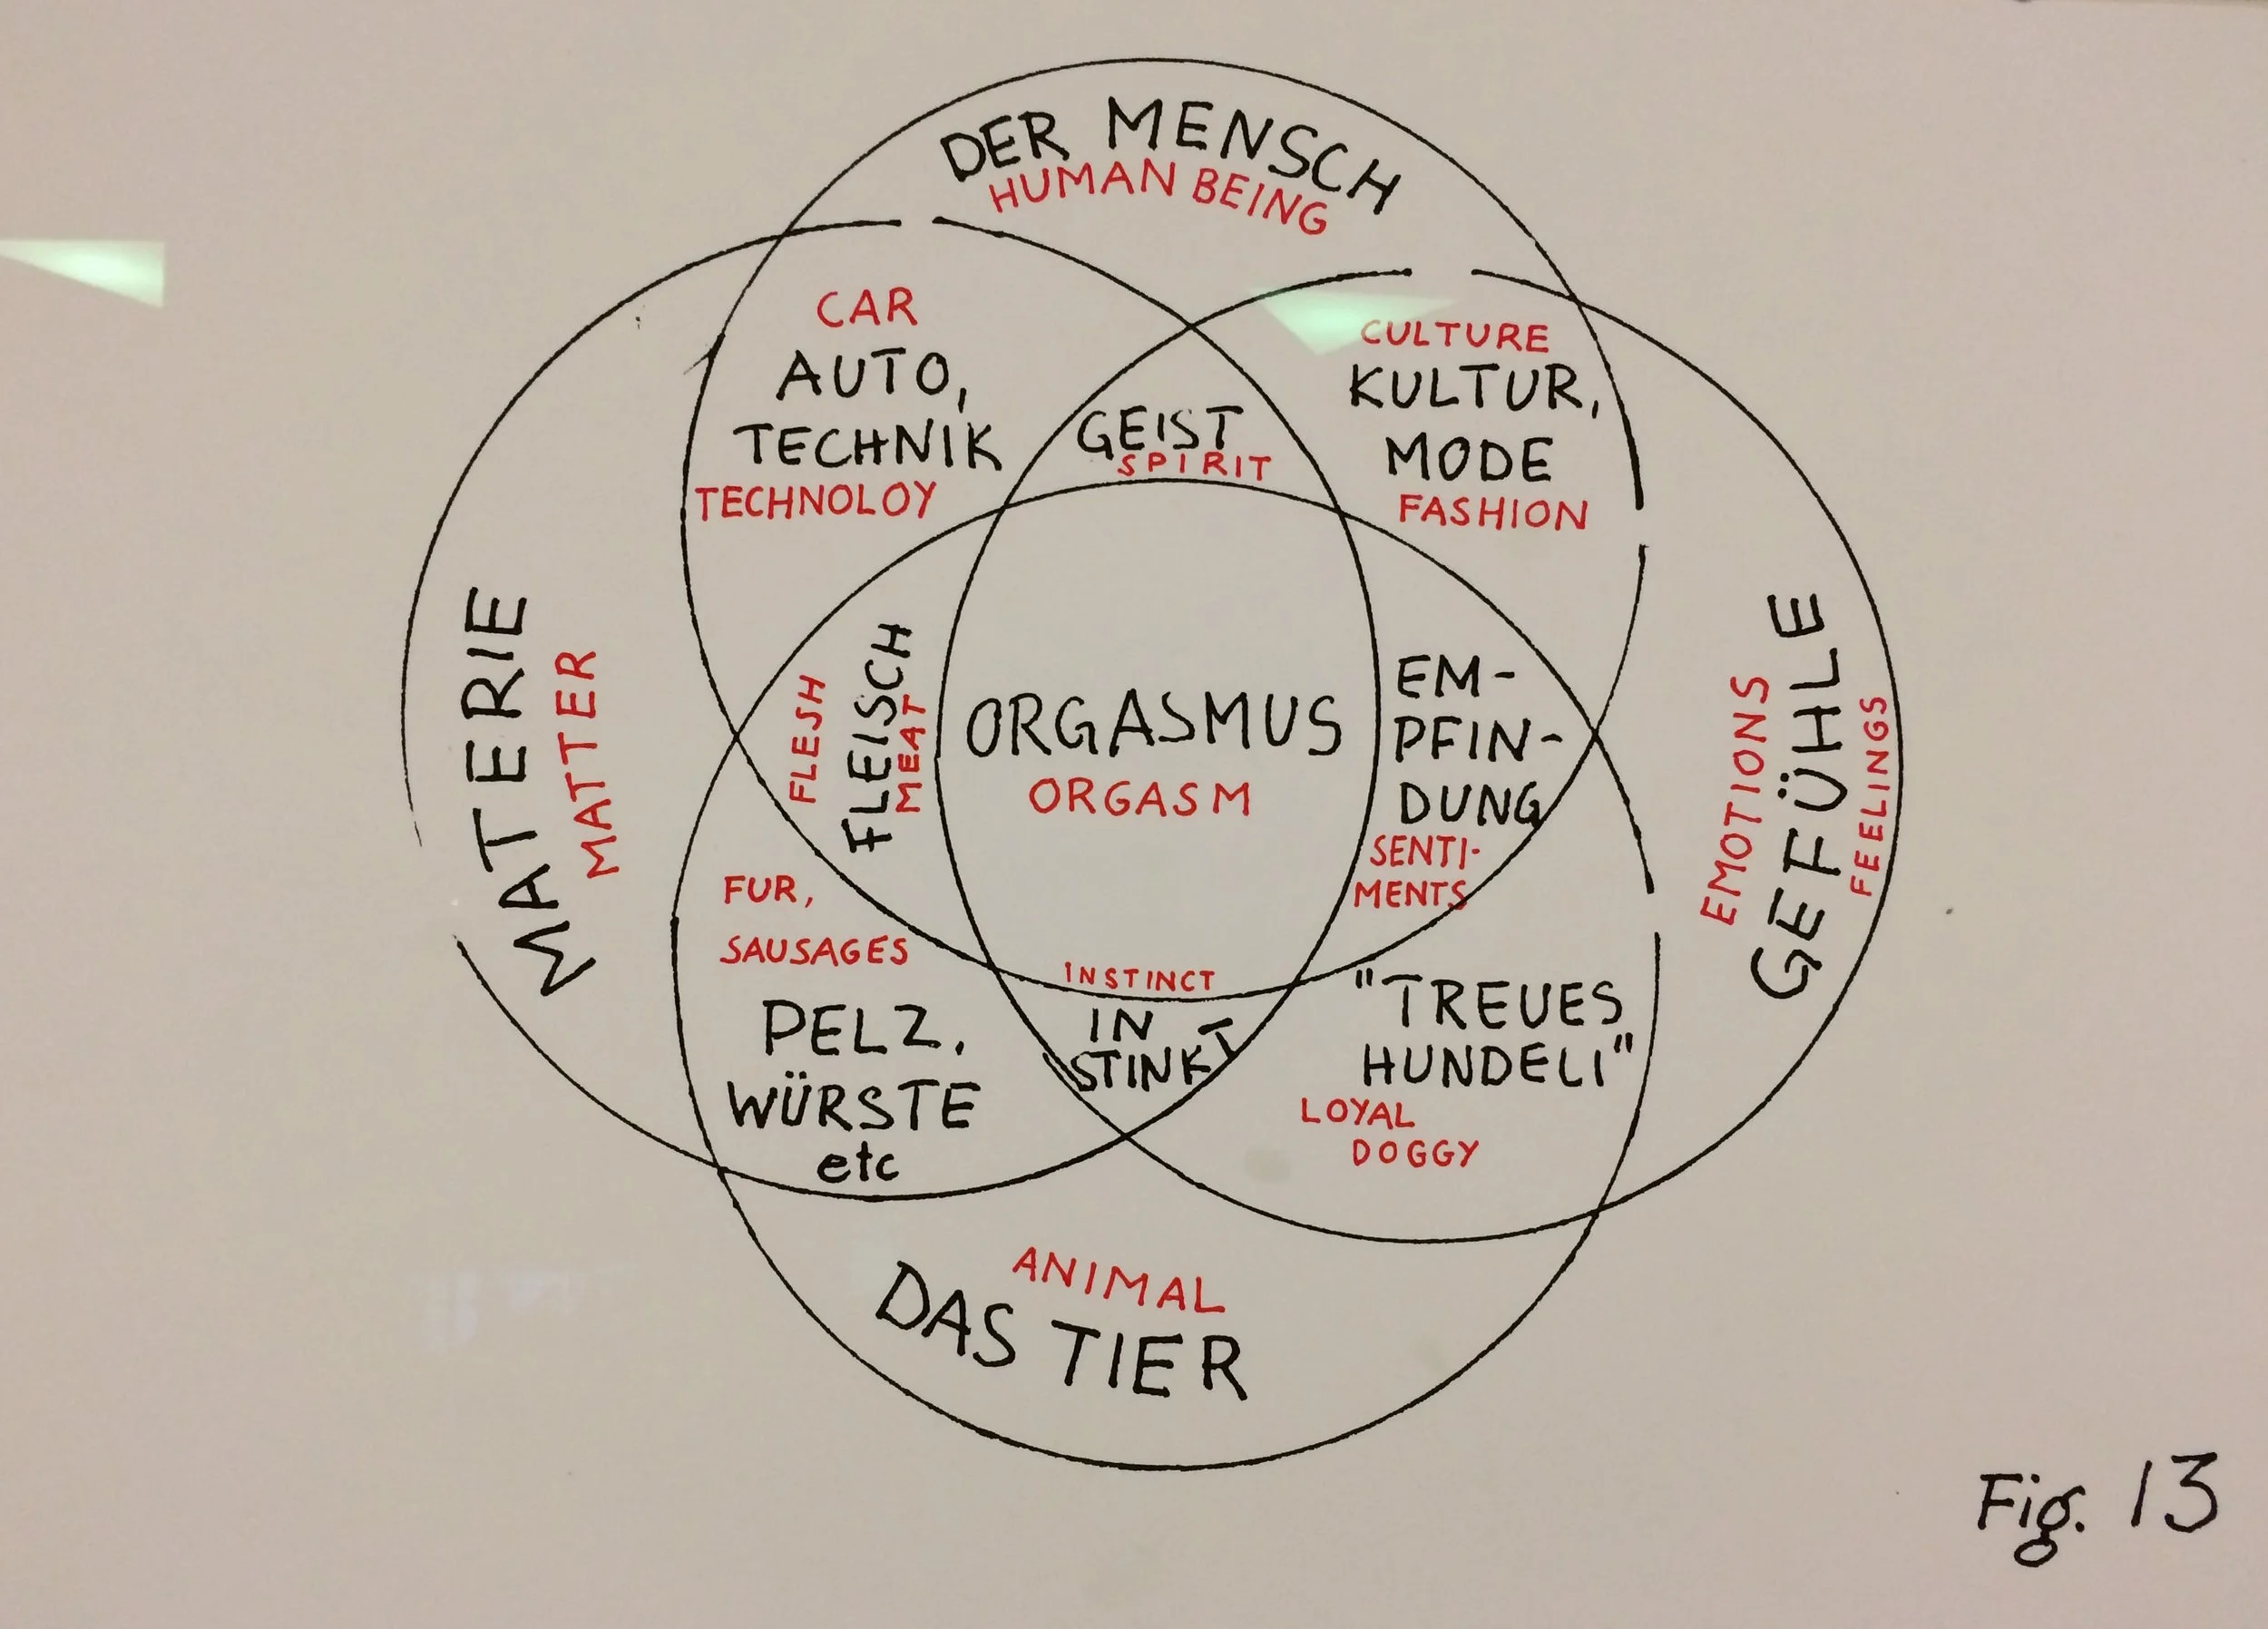 DER MENSCH
HUMAN BEING
CAR
AUTO,
TECHNIK
TECHNOLOY
CULTURE
KULTUR,
MODE
FASHION
GEIST
SPIRIT
MATERIE
MATTER
FLESH
FLEISCH
MEAT
ORGASMUS
ORGASM
EM-
PFIN-
DUNG
SENTI-
MENTS
EMOTIONS
GEFÜHLE
FEELINGS
FUR,
SAUSAGES
PELZ,
WÜRSTE
etc
INSTINCT
IN
STINKT
"TREUES
HUNDELI"
LOYAL
DOGGY
ANIMAL
DAS TIER
Fig. 13